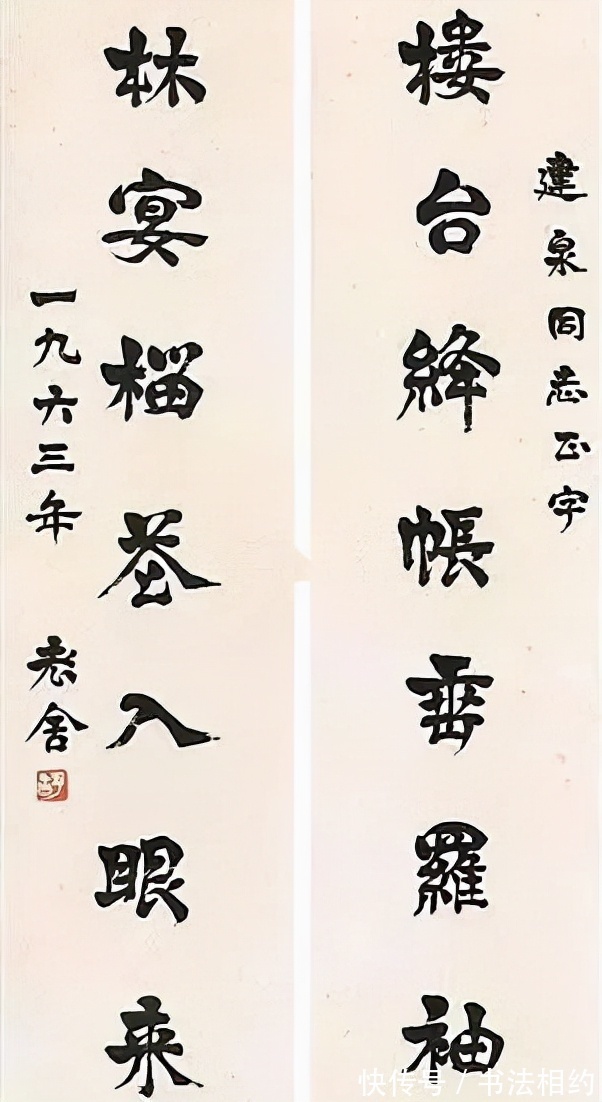 建泉同志正字
樓台絳帳垂羅袖
林宴榴入眼来
一九六三年 老舍
快传号/书法相约